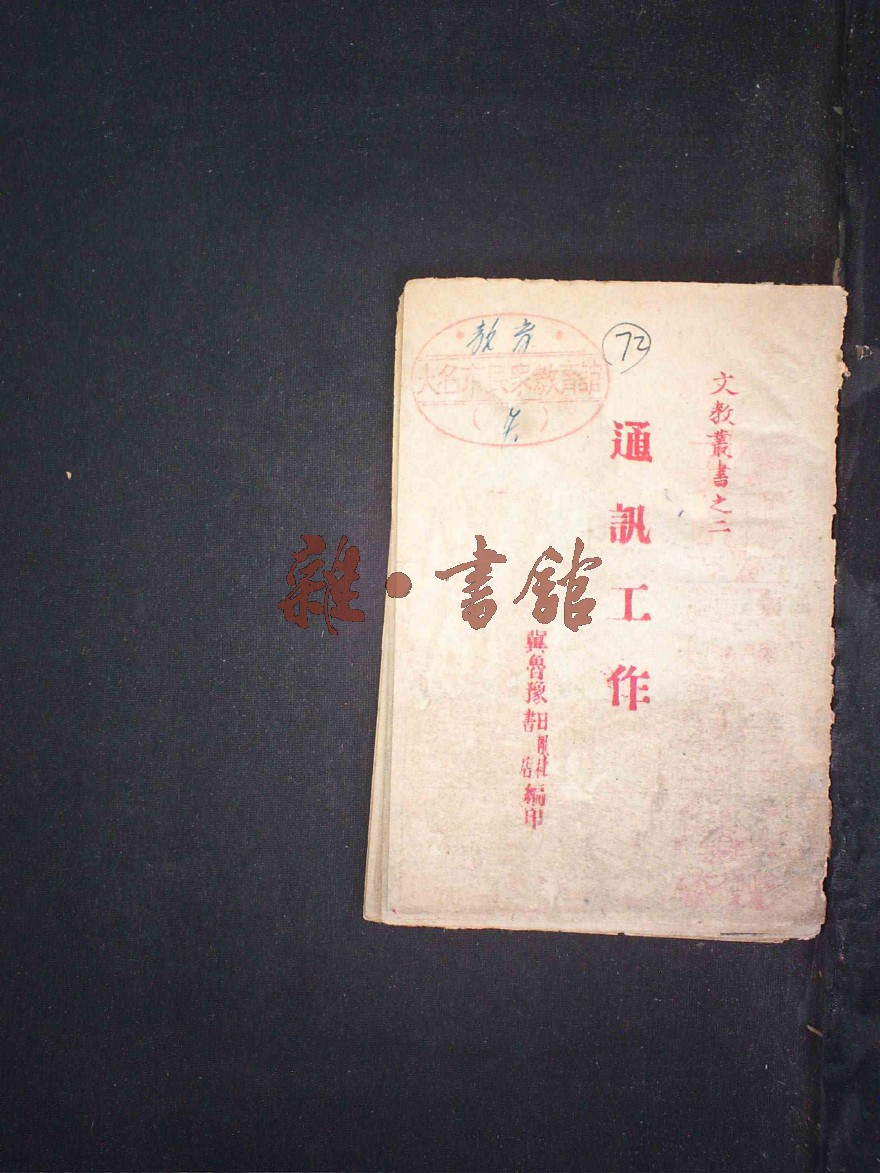 文教叢書之二
通訊工作
冀魯豫日報社書店編印
72
教育
大名市民眾教育館
雜·書館